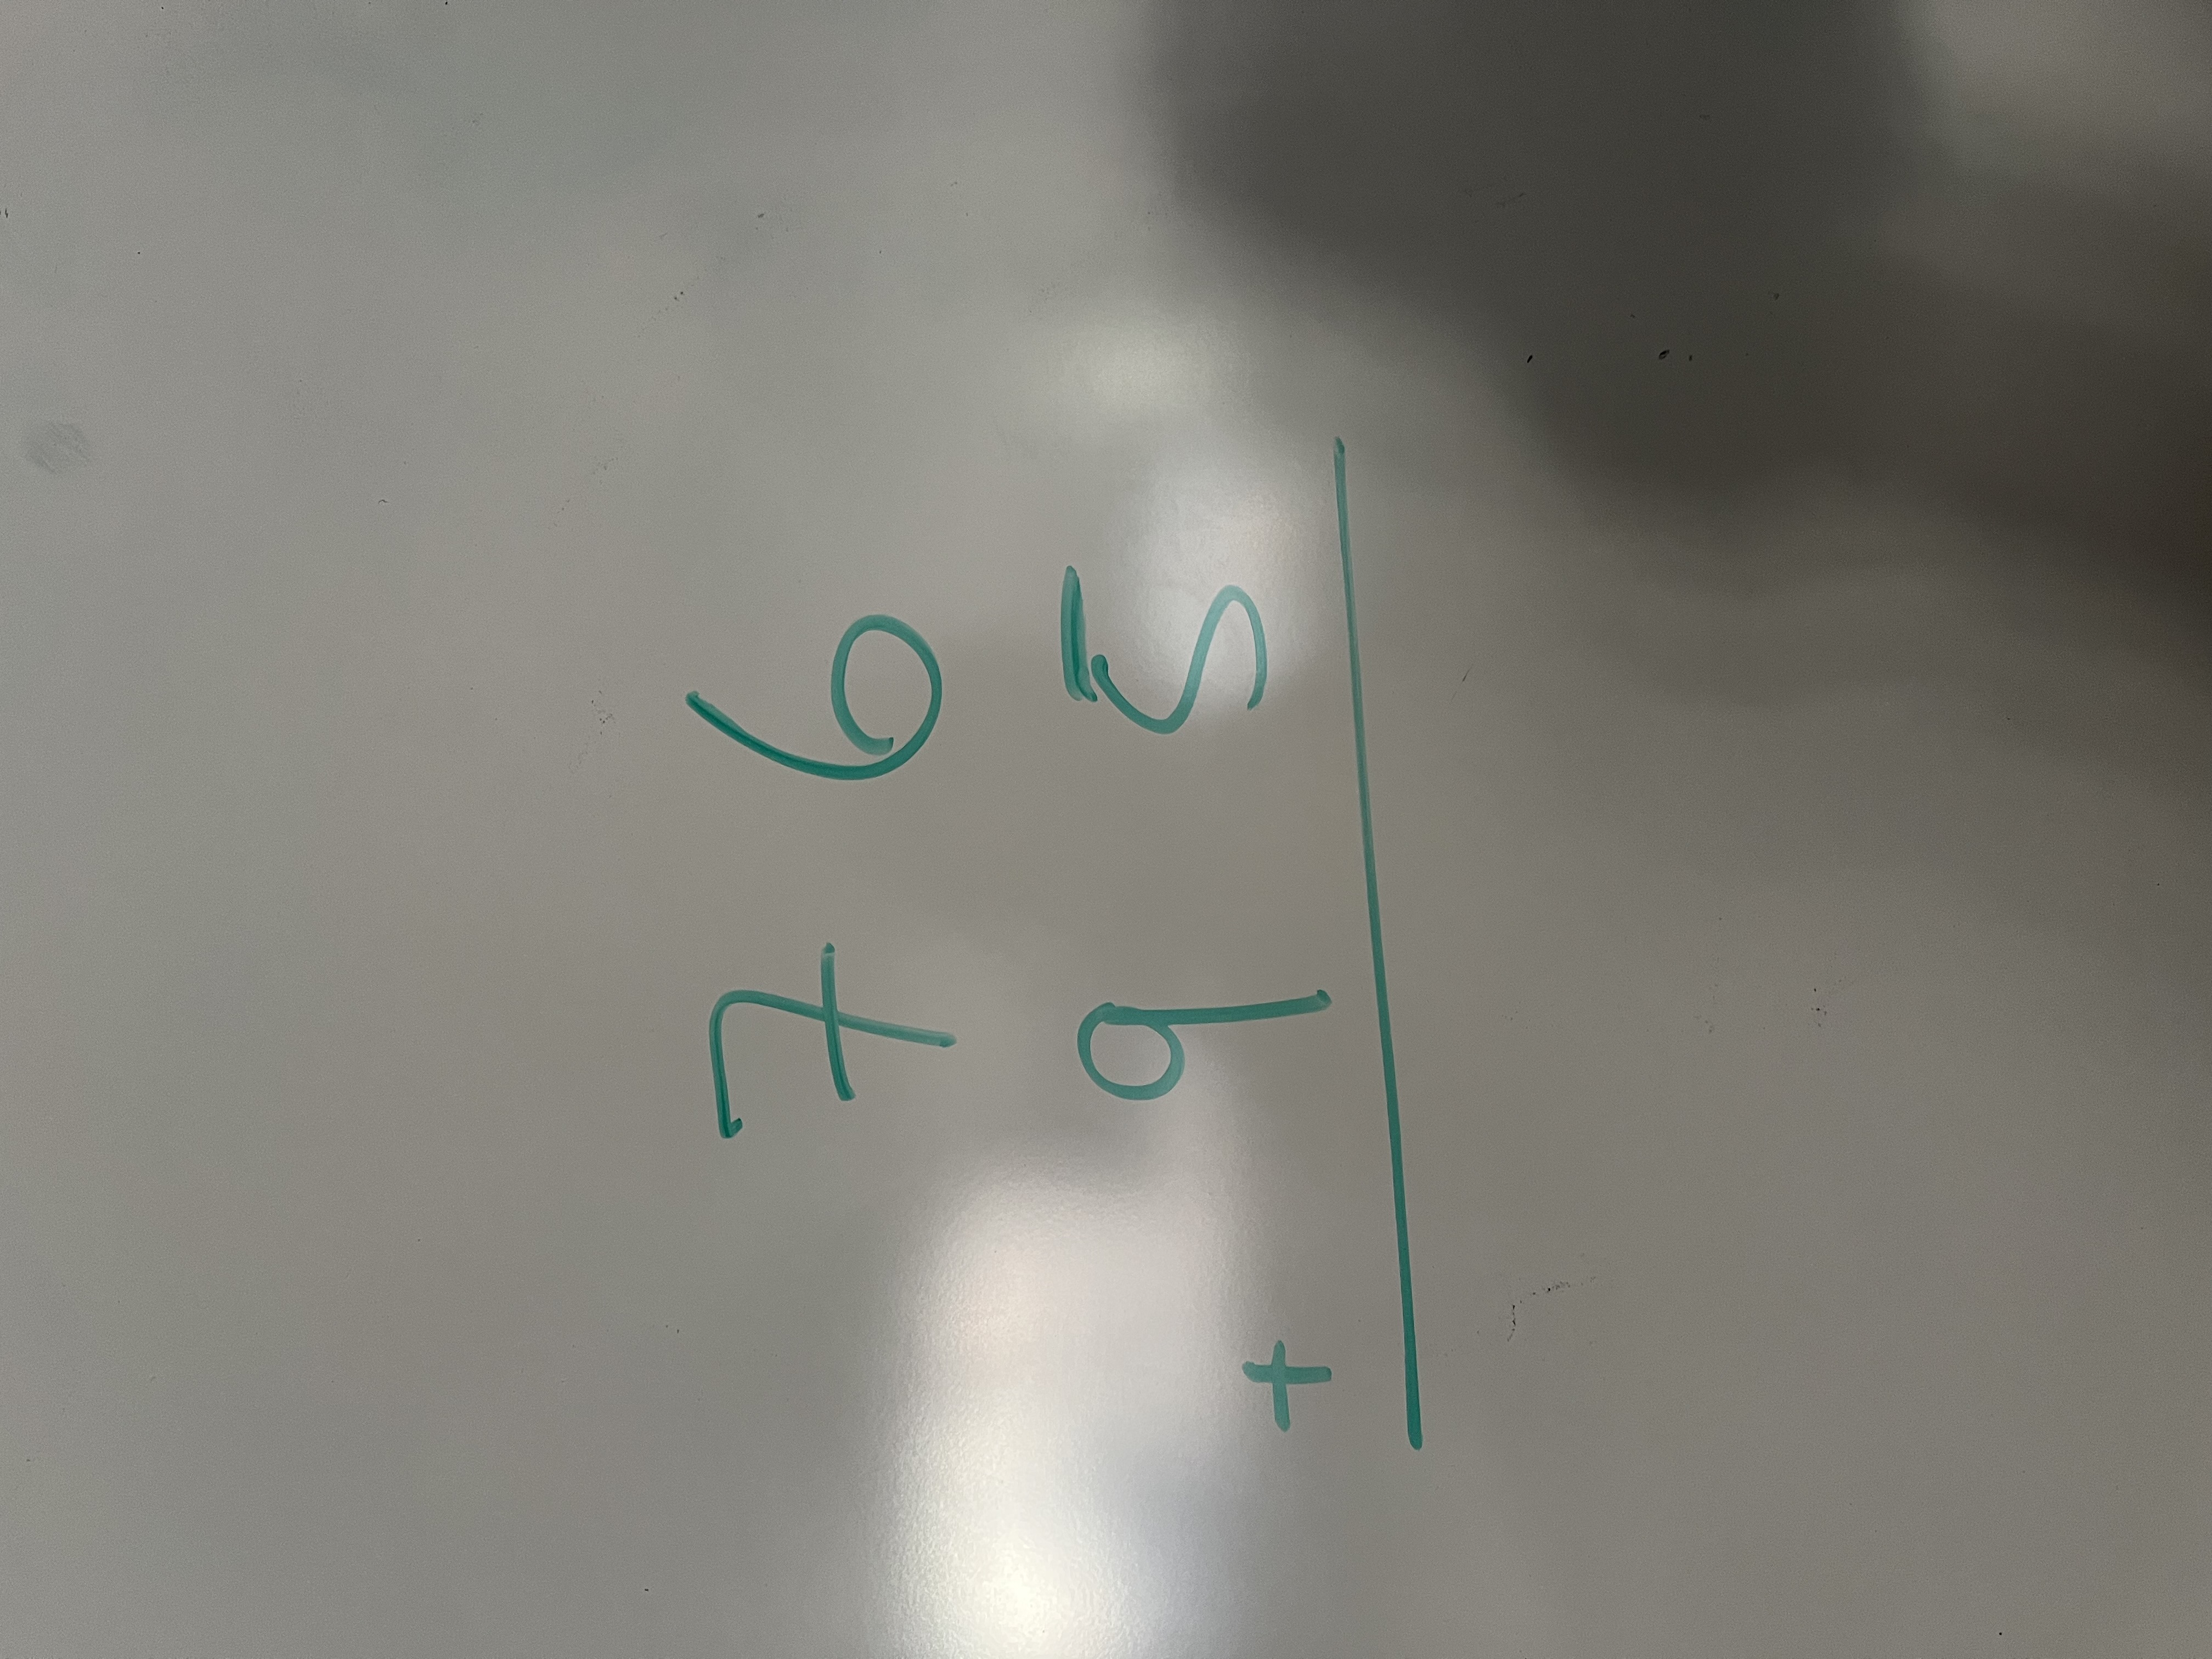 7 6
+ 9 5